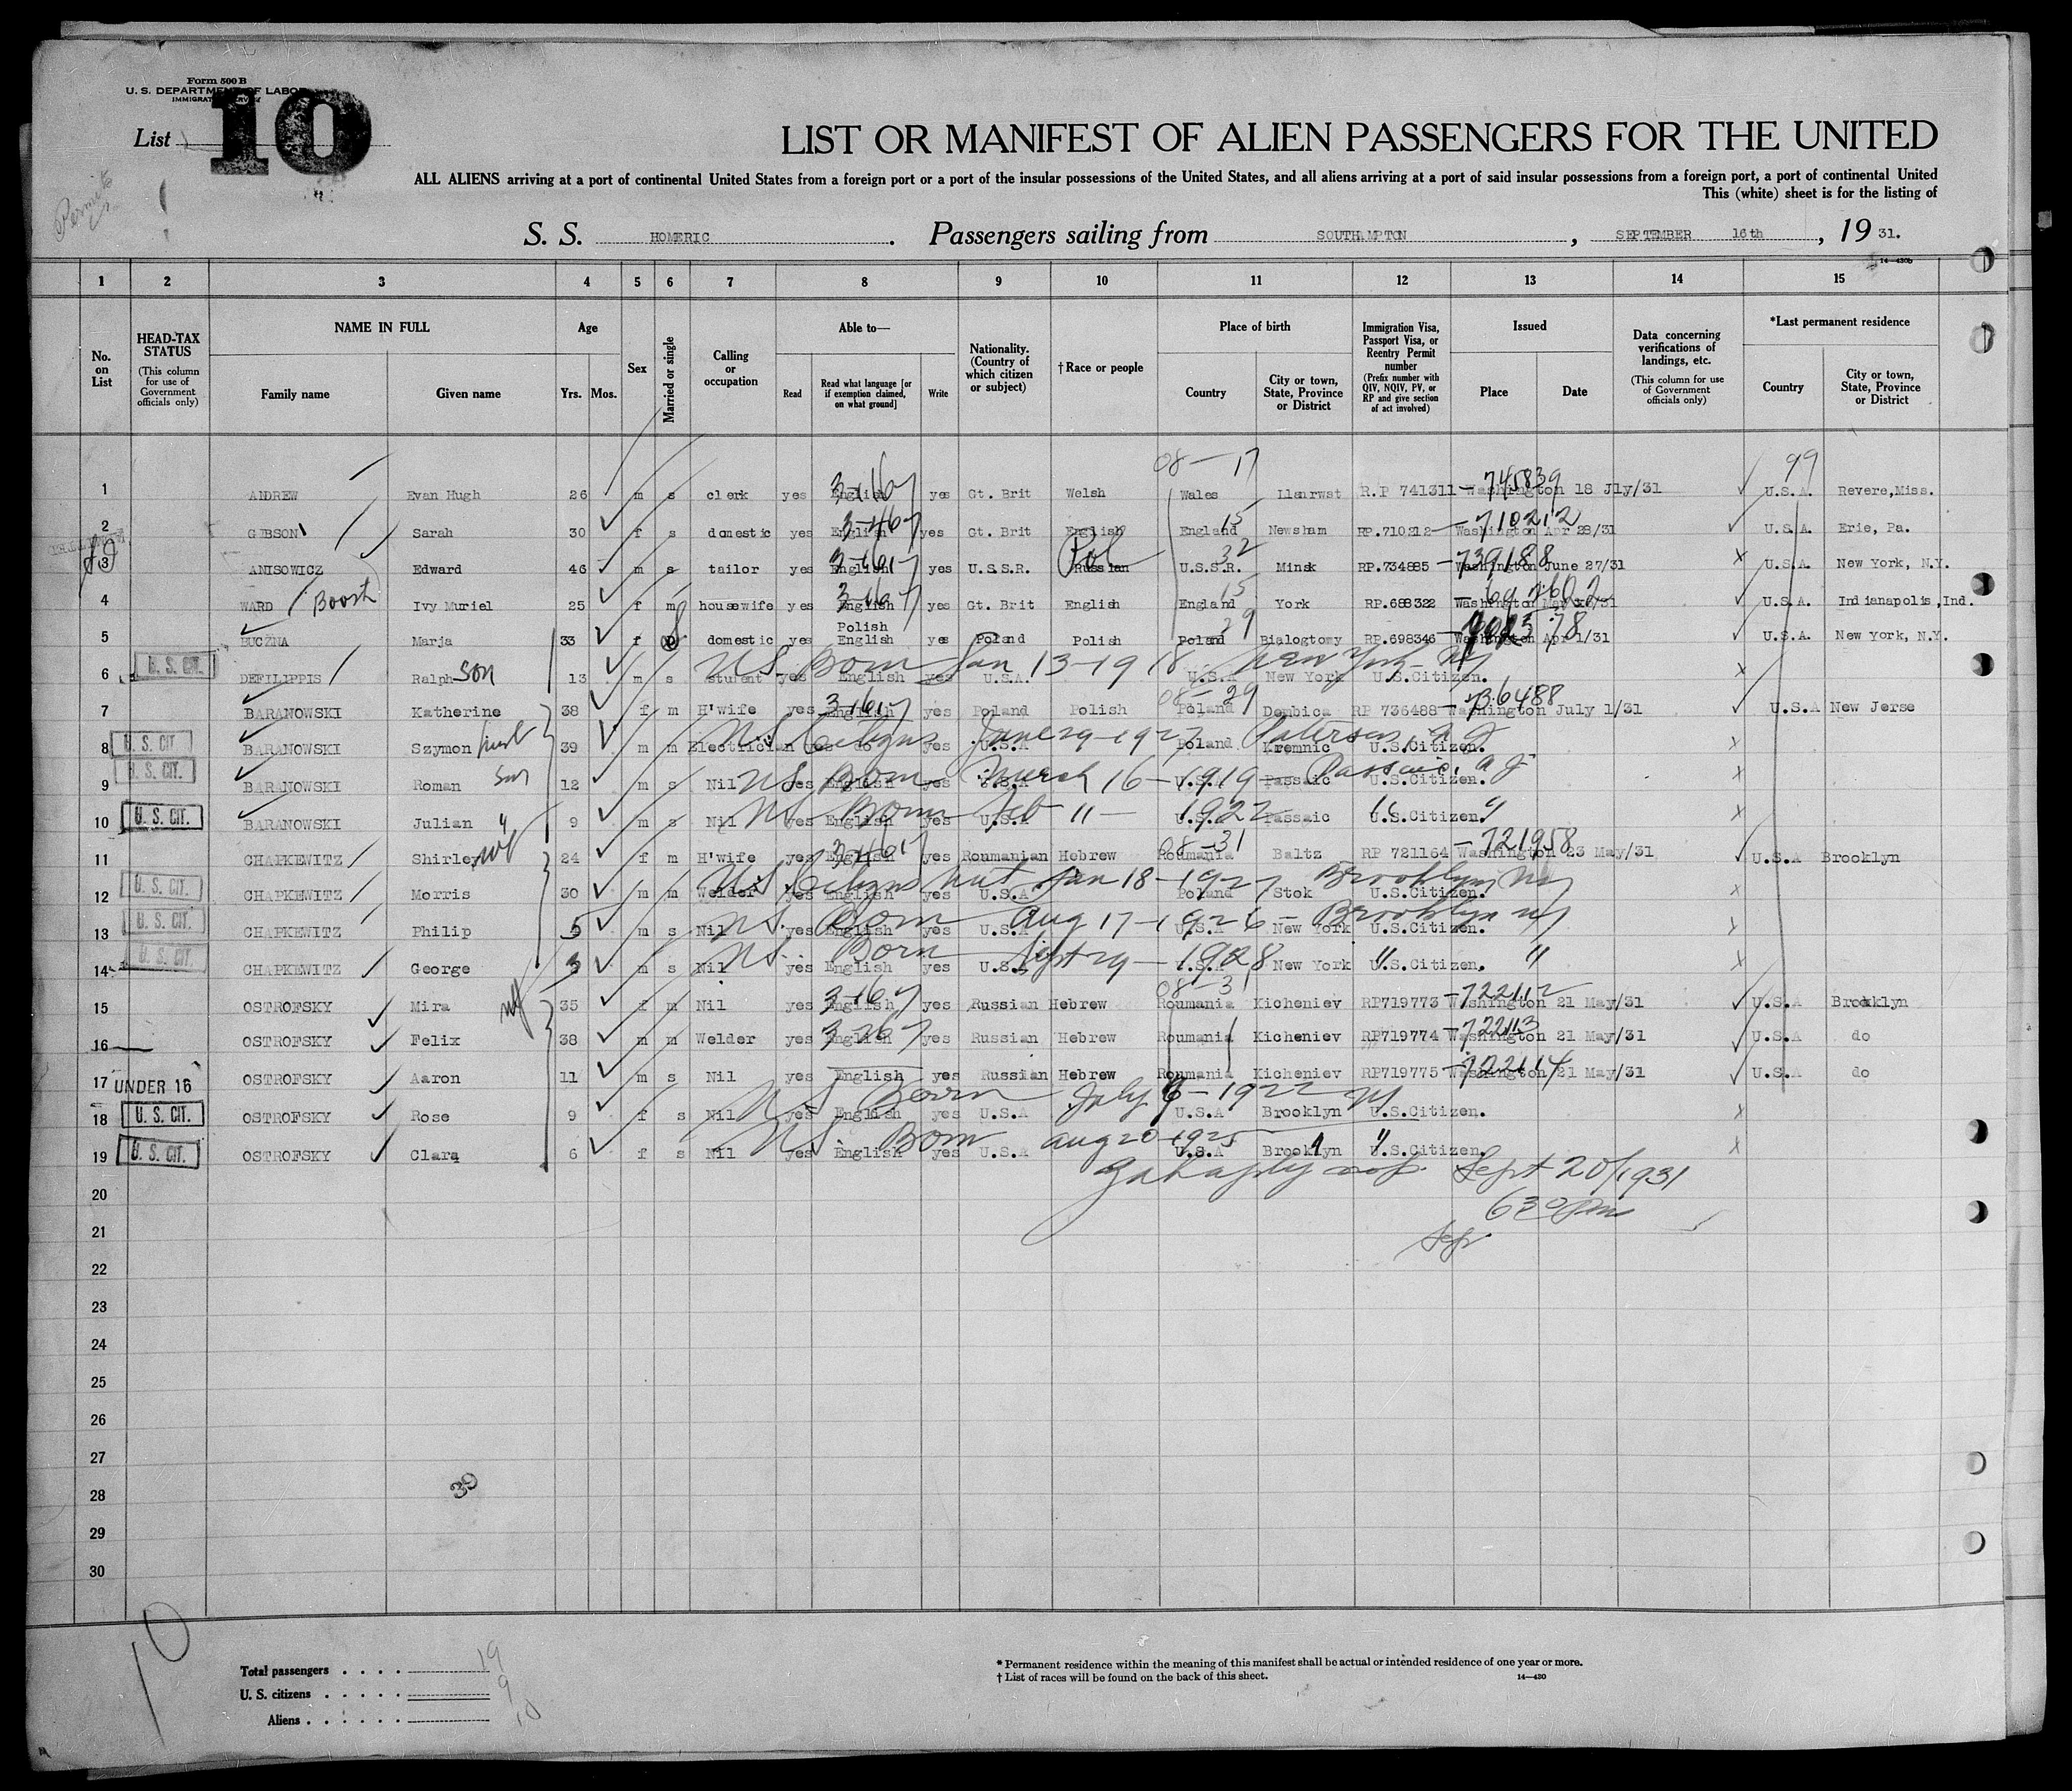 Form 500 B
U. S. DEPARTMENT OF LABOR
IMMIGRATION SERVICE
List 10
LIST OR MANIFEST OF ALIEN PASSENGERS FOR THE UNITED
ALL ALIENS arriving at a port of continental United States from a foreign port or a port of the insular possessions of the United States, and all aliens arriving at a port of said insular possessions from a foreign port, a port of continental United
This (white) sheet is for the listing of
Permits
S. S. HOMERIC. Passengers sailing from SOUTHAMPTON, SEPTEMBER 16th, 19 31.
14—430b
1 2 3 4 5 6 7 8 9 10 11 12 13 14 15
No. on List
HEAD-TAX STATUS (This column for use of Government officials only)
NAME IN FULL
Family name Given name
Age
Yrs. Mos.
Sex
Married or single
Calling or occupation
Able to—
Read Read what language [or if exemption claimed, on what ground] Write
Nationality. (Country of which citizen or subject)
† Race or people
Place of birth
Country City or town, State, Province or District
Immigration Visa, Passport Visa, or Reentry Permit number (Prefix number with QIV, NQIV, PV, or RP and give section of act involved)
Issued
Place Date
Data concerning verifications of landings, etc. (This column for use of Government officials only)
*Last permanent residence
Country City or town, State, Province or District
08—17 99
1 ANDREW Evan Hugh 26 m s clerk yes English yes Gt. Brit Welsh Wales Llanrwst R.P 741311 — 745839 Washington 18 Jly/31 U.S.A. Revere,Miss.
2 GIBSON Sarah 30 f s domestic yes English yes Gt. Brit English England 15 Newsham RP.710212 — 710212 Washington Apr 28/31 U.S.A. Erie, Pa.
3 ANISOWICZ Edward 46 m s tailor yes English yes U.S.S.R. Russian Pol U.S.S.R. 32 Minsk RP.734885 — 739188 Washington June 27/31 x U.S.A. New York, N.Y.
4 WARD Booth Ivy Muriel 25 f m housewife yes English yes Gt. Brit English England 15 York RP.688322 Washington U.S.A. Indianapolis,Ind.
5 BUCZNA Marja 33 f domestic yes Polish English yes Poland Polish Poland 29 Bialogtomy RP.698346 Washington Apr 1/31 U.S.A. New York, N.Y.
6 U. S. CIT. DEFILIPPIS Ralph son 13 m s student yes English yes U.S.A. U.S.A New York U.S.Citizen. US Born Jan 13-1918 New York NY x
7 BARANOWSKI Katherine 38 f m H'wife yes English yes Poland Polish Poland 08—29 Dembica RP 736488 — 736488 Washington July 1/31 U.S.A New Jerse
8 U. S. CIT BARANOWSKI Szymon husb 39 m m Electrician yes do yes U.S.A Poland Kremnic U.S.Citizen. US Citizen June 29-1927 Paterson, NJ x
9 U. S. CIT. BARANOWSKI Roman son 12 m s Nil yes English yes U.S.A U.S.A Passaic U.S.Citizen. US Born March 16-1919 Passaic, NJ x
10 U. S. CIT. BARANOWSKI Julian " 9 m s Nil yes English yes U.S.A U.S.A Passaic U.S.Citizen. US Born Feb 11—1922 " " x
11 CHAPKEWITZ Shirley wf 24 f m H'wife yes English yes Roumanian Hebrew Roumania 08—31 Baltz RP 721164 — 721958 Washington 23 May/31 U.S.A Brooklyn
12 U. S. CIT. CHAPKEWITZ Morris 30 m m Welder yes English yes U.S.A Poland Stok U.S.Citizen. US Citizen nat Jan 18-1927 Brooklyn NY x
13 U. S. CIT. CHAPKEWITZ Philip 5 m s Nil yes English yes U.S.A U.S.A New York U.S.Citizen. US Born Aug 17-1926 — Brooklyn NY x
14 U. S. CIT. CHAPKEWITZ George 3 m s Nil yes English yes U.S.A U.S.A New York U.S.Citizen. US Born Sept 29—1928 " " x
15 OSTROFSKY Mira wf 35 f m Nil yes English 3-167 yes Russian Hebrew Roumania 08—31 Kicheniev RP719773 — 722112 Washington 21 May/31 U.S.A Brooklyn
16 OSTROFSKY Felix 38 m m Welder yes English yes Russian Hebrew Roumania Kicheniev RP719774 — 722113 Washington 21 May/31 U.S.A do
17 UNDER 16 OSTROFSKY Aaron 11 m s Nil yes English yes Russian Hebrew Roumania Kicheniev RP719775 — 722114 Washington 21 May/31 U.S.A do
18 U. S. CIT. OSTROFSKY Rose 9 f s Nil yes English yes U.S.A U.S.A Brooklyn U.S.Citizen. US Born July 6-1922 NY x
19 U. S. CIT. OSTROFSKY Clara 6 f s Nil yes English yes U.S.A U.S.A Brooklyn U.S.Citizen. US Born Aug 20-1925 " x
20 Sept 20/1931
630 Pm
21
22
23
24
25
26
27
28
29
30
30
10
Total passengers . . . . 19
U. S. citizens . . . . . 9
Aliens . . . . . . 10
* Permanent residence within the meaning of this manifest shall be actual or intended residence of one year or more.
† List of races will be found on the back of this sheet. 14—430